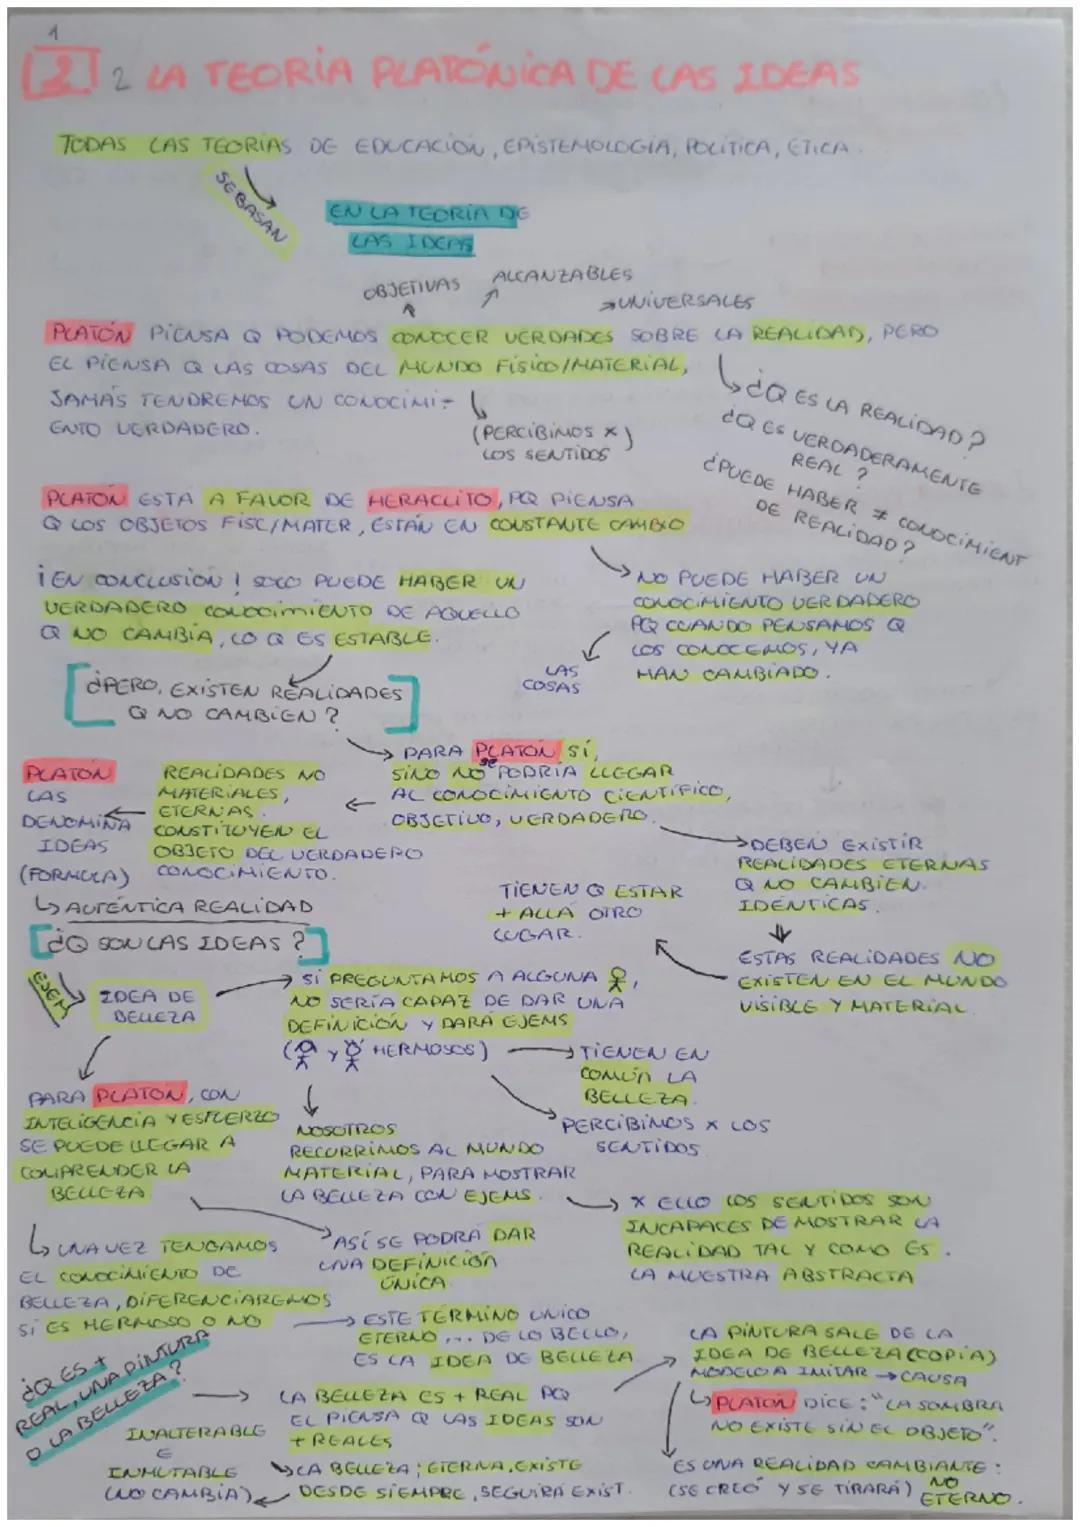 1
2 2 LA TEORÍA PLATÓNICA DE LAS IDEAS
TODAS LAS TEORÍAS DE EDUCACIÓN, EPISTEMOLOGÍA, POLÍTICA, ÉTICA.
SE BASAN
EN LA TEORÍA DE
LAS IDEAS
OBJETIVAS ALCANZABLES
UNIVERSALES
PLATÓN PIENSA Q PODEMOS CONOCER VERDADES SOBRE LA REALIDAD, PERO
EL PIENSA Q LAS COSAS DEL MUNDO FÍSICO/MATERIAL,
JAMÁS TENDREMOS UN CONOCIMI-
ENTO VERDADERO.
(PERCIBIMOS X)
LOS SENTIDOS
¿Q ES LA REALIDAD?
¿Q ES VERDADERAMENTE
REAL?
¿PUEDE HABER ≠ CONOCIMIENT
DE REALIDAD?
PLATÓN ESTÁ A FAVOR DE HERACLITO, PQ PIENSA
Q LOS OBJETOS FISC/MATER, ESTÁN EN CONSTANTE CAMBIO
¡EN CONCLUSIÓN! SOLO PUEDE HABER UN
VERDADERO CONOCIMIENTO DE AQUELLO
Q NO CAMBIA, LO Q ES ESTABLE.
NO PUEDE HABER UN
CONOCIMIENTO VERDADERO
PQ CUANDO PENSAMOS Q
LOS CONOCEMOS, YA
HAN CAMBIADO.
LAS
COSAS
¿PERO, EXISTEN REALIDADES
Q NO CAMBIEN?
PARA PLATÓN SÍ,
SINO NO se PODRÍA LLEGAR
AL CONOCIMIENTO CIENTÍFICO,
OBJETIVO, VERDADERO.
REALIDADES NO
MATERIALES,
ETERNAS.
CONSTITUYEN EL
OBJETO DEL VERDADERO
CONOCIMIENTO.
PLATÓN
LAS
DENOMINA
IDEAS
(FORMULA)
AUTÉNTICA REALIDAD
DEBEN EXISTIR
REALIDADES ETERNAS
Q NO CAMBIEN.
IDÉNTICAS.
ESTAS REALIDADES NO
EXISTEN EN EL MUNDO
VISIBLE Y MATERIAL
TIENEN Q ESTAR
+ ALLÁ OTRO
LUGAR.
¿Q SON LAS IDEAS?
EJEM
IDEA DE
BELLEZA
SI PREGUNTAMOS A ALGUNA,
NO SERÍA CAPAZ DE DAR UNA
DEFINICIÓN Y DARÁ EJEMS
( Y HERMOSOS)
TIENEN EN
COMÚN LA
BELLEZA.
PERCIBIMOS X LOS
SENTIDOS
PARA PLATÓN, CON
INTELIGENCIA Y ESFUERZO
SE PUEDE LLEGAR A
COMPRENDER LA
BELLEZA
NOSOTROS
RECURRIMOS AL MUNDO
MATERIAL, PARA MOSTRAR
LA BELLEZA CON EJEMS.
X ELLO LOS SENTIDOS SON
INCAPACES DE MOSTRAR LA
REALIDAD TAL Y COMO ES.
LA MUESTRA ABSTRACTA
ASÍ SE PODRÁ DAR
UNA DEFINICIÓN
ÚNICA.
UNA VEZ TENGAMOS
EL CONOCIMIENTO DE
BELLEZA, DIFERENCIAREMOS
SI ES HERMOSO O NO
ESTE TÉRMINO ÚNICO
ETERNO... DE LO BELLO,
ES LA IDEA DE BELLEZA
¿Q ES +
REAL, UNA PINTURA
O LA BELLEZA?
LA BELLEZA ES + REAL PQ
EL PIENSA Q LAS IDEAS SON
+ REALES
LA BELLEZA; ETERNA. EXISTE
DESDE SIEMPRE, SEGUIRÁ EXIST.
INALTERABLE
E
INMUTABLE
(NO CAMBIA)
LA PINTURA SALE DE LA
IDEA DE BELLEZA (COPIA)
MODELO A IMITAR → CAUSA
PLATÓN DICE: "LA SOMBRA
NO EXISTE SIN EL OBJETO".
ES UNA REALIDAD CAMBIANTE:
(SE CREÓ Y SE TIRARÁ) NO
ETERNO.